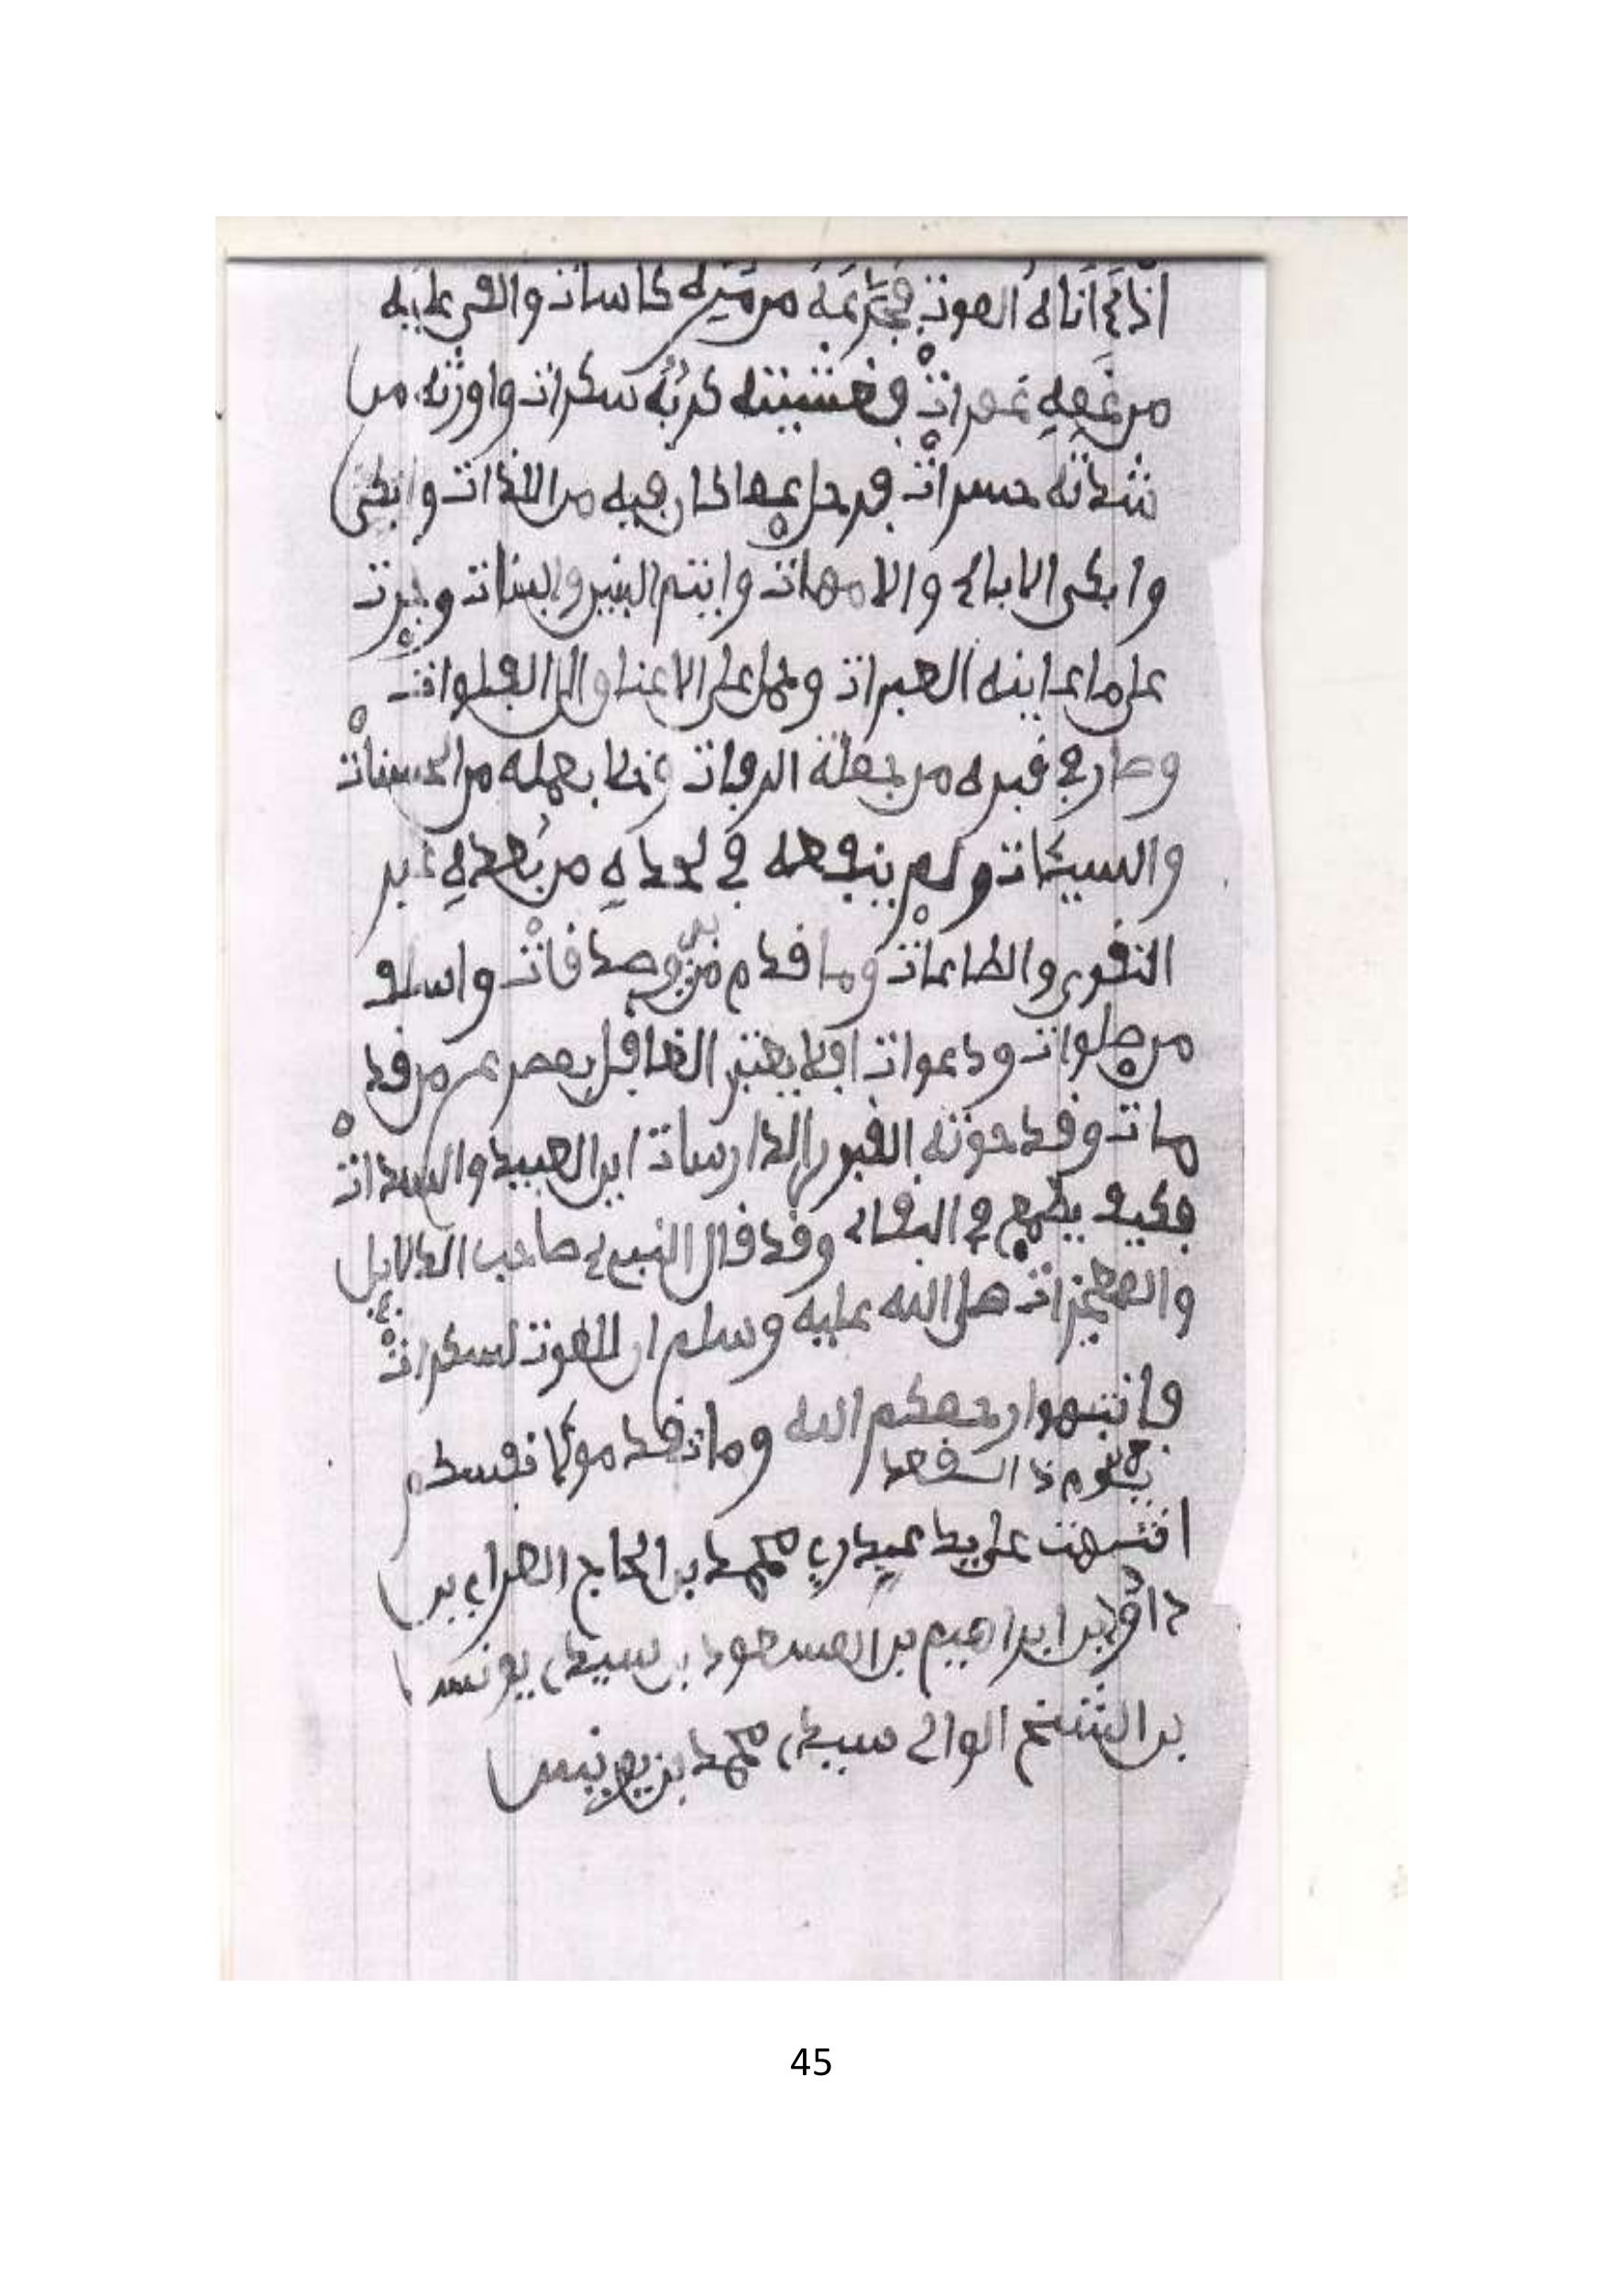 اذاء اتاه الموت فجرعه من مره كاسات والقى عليه
من غمه غمرات فغشيته كربه سكرات واورثه من
شداته حسرات فرحل عما كان فيه من اللذات وابكى
وابكى الاباء والامهات وايتم البنين والبنات وجرت
على ما عاينه العبرات وحمل على الاعناق الى الفلوات
وصار في قبره من جملة الرفات بعمله من الحسنات
والسيئات ولم ينفعه في لحده من بعده غير
التقوى والطاعات وما قدم من صدقات واسلف
من صلوات ودعوات افلا يعتبر الغافل بمصرع من قد
مات وقد حوته القبور الدارسات اين العبيد والسدات
فكيف يطمع في البقاء وقد قال النبيء صاحب الدلايل
والمعجزات صلى الله عليه وسلم ان للموت لسكرات
فانتبهوا رحمكم الله ومات
انتهت على يد عبيد ربي محمد بن الحاج
بن ابراهيم بن المسعود بن سيدي يونس
بن الشيخ الوالي سيدي محمد بن يونس
45